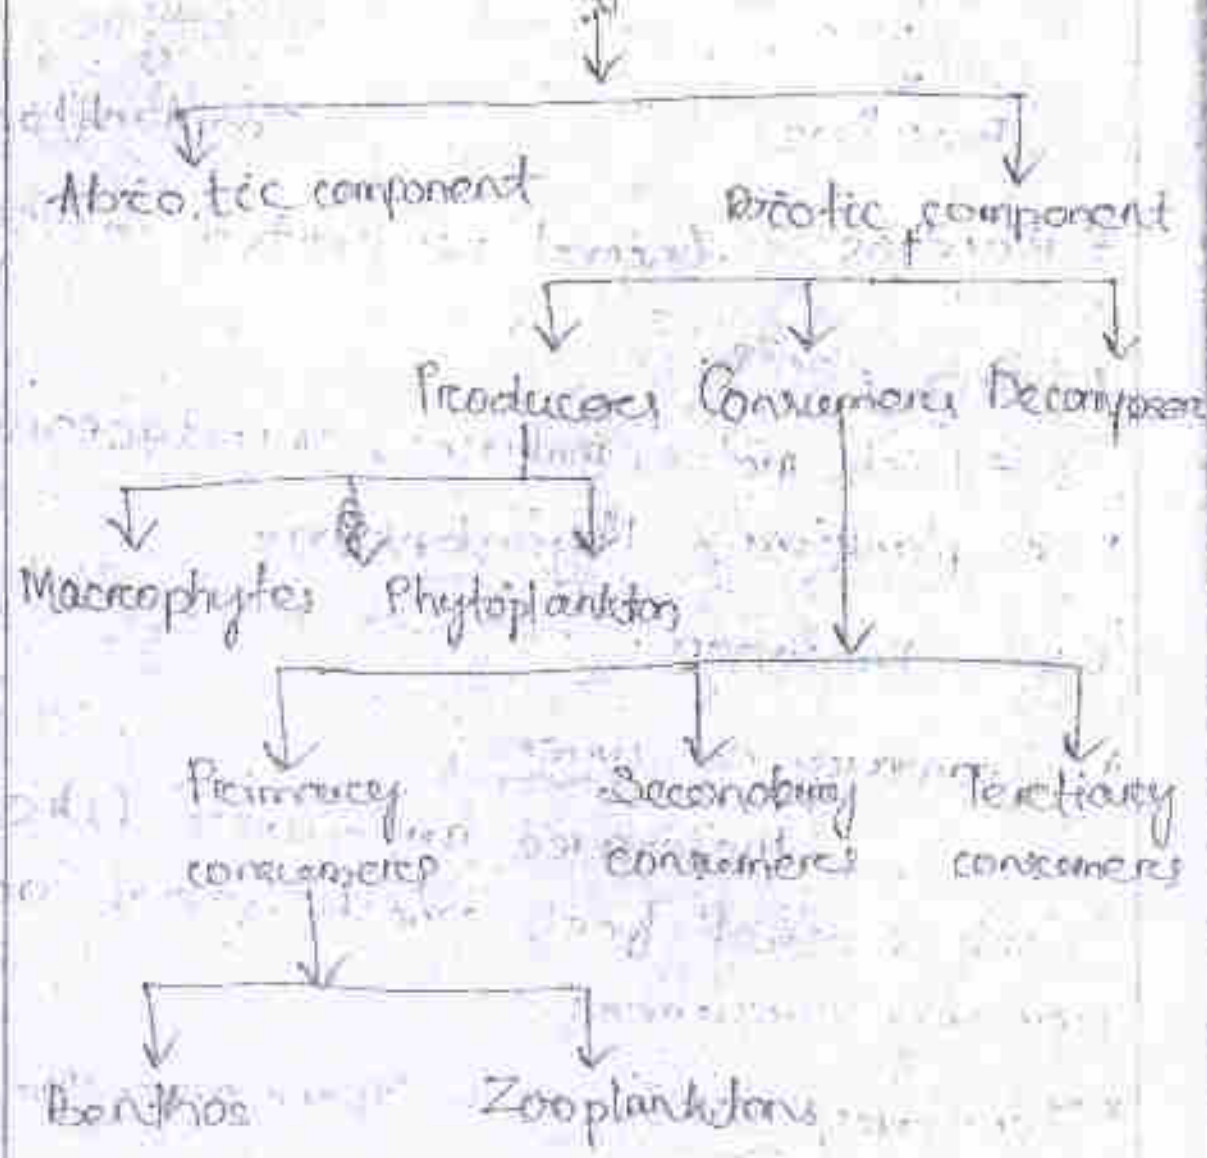 Abiotic component
Biotic component
Producers Consumers Decomposer
Macrophytes Phytoplanktons
Primary consumers
Secondary consumers
Tertiary consumers
Benthos Zooplanktons